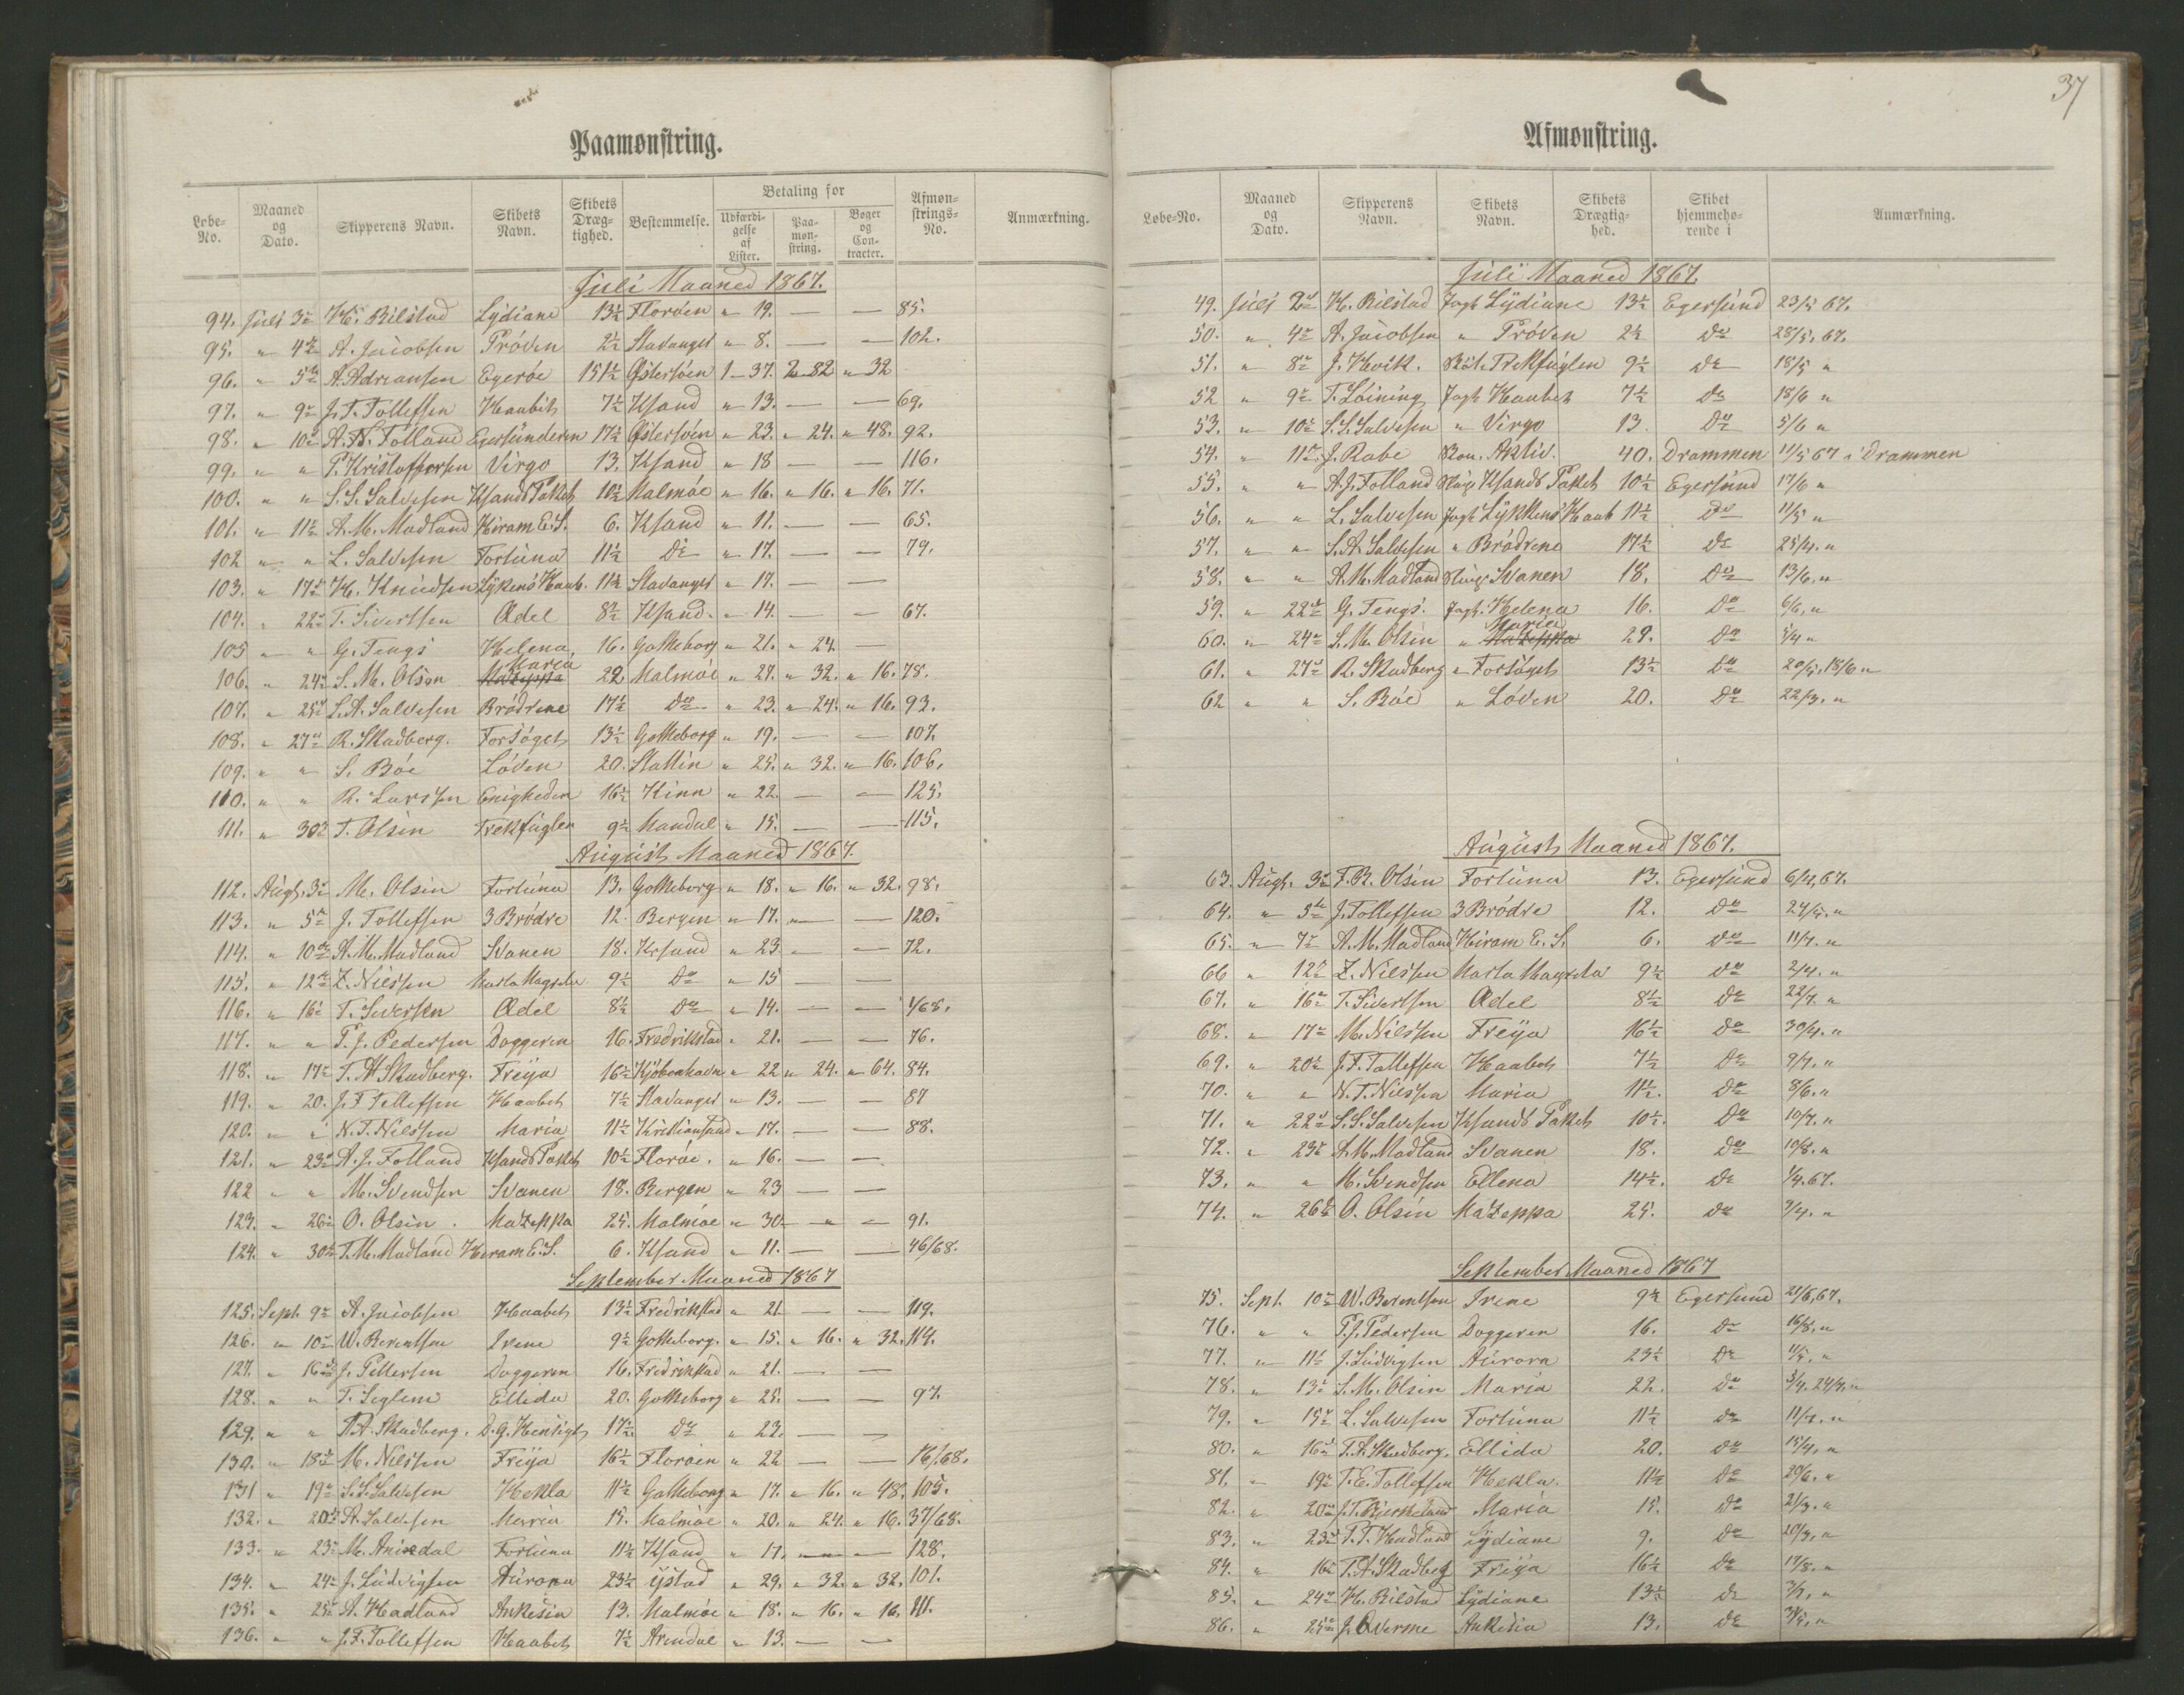 37
Paamønstring.
Løbe-No. | Maaned og Dato. | Skipperens Navn. | Skibets Navn. | Skibets Drægtighed. | Bestemmelse. | Betaling for | Udfærdigelse af Lister. | Paamønstring. | Bøger og Contracter. | Afmønstrings-No. | Anmærkning.
Juli Maaned 1867.
94. Juli 3 H. Bilstad Lydiane 13½ Florøen " 19. — — 85.
95. " 4 A. Jacobsen Prøven 2½ Stavanger " 8. — — 102.
96. " 5 A. Adriansen Egerøe 151½ Østersøen 1-37. 2-82 " 32
97. " 9 J. T. Tollefsen Haabet 7½ Ksand " 13. — — 69.
98. " 10 A. N. Følland Egersunderen 17½ Østersøen " 23. " 24. " 48. 92.
99. " " P. Kristoffersen Virgo 13. Ksand " 18 — — 116.
100. " " S. S. Salvesen Ksands Paket 10½ Malmøe " 16. " 16. " 16. 71.
101. " 11 A. M. Madland Hiram E. S. 6. Ksand " 11. — — 65.
102 " " L. Salvesen Fortuna 11½ Do " 17. — — 79.
103. " 17 H. Knudsen Lykens Haab. 11½ Stavanger " 17. — —
104. " 22 T. Sivertsen Ædel 8½ Ksand. " 14. — — 67.
105 " " G. Tengs Helena, 16. Gotheborg " 21. " 24. —
106. " 24 S. M. Olsen Mazeppa Maria 22. Malmøe " 27. " 32. " 16. 78.
107. " 25 S. A. Salvesen Brødrene 17½ Do " 23. " 24. " 16. 93.
108. " 27 R. Skadberg. Forsøget 13½ Gotheborg " 19. — — 107.
109. " " S. Bøe Løven 20. Stettin " 25. " 32. " 16. 106.
110. " " R. Larssen Enigheden 16½ Kinn " 22. — — 125.
111. " 30 T. Olsen Trekfuglen 9½ Mandal " 15. — — 115.
August Maaned 1867.
112. Augt. 3 M. Olsen Fortuna 13. Gotheborg " 18. " 16. " 32. 98.
113. " 5 J. Tollefsen 3 Brødre 12. Bergen " 17. — — 120.
114. " 10 A. M. Madland Svanen 18. Krsand " 23 — — 72.
115. " 12 Z. Nilssen 9½ Do " 15 — —
116. " 16 T. Sivertsen Ædel 8½ Do " 14. — —
117. " " P. J. Pedersen Doggeren 16. Fredrikstad " 21. — — 76.
118. " 17 T. A. Skadberg. Freya 16½ Kjøbenhavn " 22 " 24. " 64. 84.
119. " 20. J. T. Tollefsen Haabet 7½ Stavanger " 13. — — 87
120. " " N. T. Nilssen Maria 11½ Kristiansand " 17. — — 88.
121. " 23 A. J. Folland Ksands Paket 10½ Florøe. " 16. — —
122 " " M. Svendsen Svanen 18. Bergen " 23 — —
123. " 26 O. Olsen. Mazeppa 25. Malmøe " 30 — — 91.
124. " 30 T. M. Madland Hiram E. S. 6. Ksand " 11. — — 46/68.
September Maaned 1867
125. Sept. 9 A. Jacobsen Haabet 13½ Fredrikstad " 21 — — 119.
126. " 10 W. Berentsen Irene 9½ Gotheborg. " 15. " 16. " 32. 114.
127. " 16 J. Pettersen Doggeren 16. Fredrikstad " 21. — —
128. " " T. Seglem Ellida 20. Gotheborg " 25. — — 97.
129. " " A. Skadberg. D. G. Hensigt 17½ Do " 23. — —
130. " 18 M. Nilssen Freya 16½ Florøen " 22 — — 16/68.
131 " 19 S. S. Salvesen Hekla 11½ Gotheborg " 17. " 16. " 48. 105.
132. " 20 A. Salvesen Maria 15. Malmøe " 20. " 24. " 16. 37/68.
133. " 23 M. Aniendal Fortuna 11½ Ksand " 17. — — 128.
134. " 24 J. Ludvigsen Aurora 23½ Ystad " 29. " 32. " 32. 101.
135. " 25 A. Hadland Ankesia 13. Malmøe " 18. " 16. " 16. 111.
136. " " J. T. Tollefsen Haabet 7½ Arendal " 13. — —
Afmønstring.
Løbe-No. | Maaned og Dato. | Skipperens Navn. | Skibets Navn. | Skibets Drægtighed. | Skibet hjemmehørende i | Anmærkning.
Juli Maaned 1867.
49. Juli 2 H. Bilstad Jagt Lydiane 13½ Egersund 23/5 67.
50. " 4 A. Jacobsen " Prøven 2½ Do 28/5. 67.
51. " 8 J. Hovik. Trekfuglen 9½ Do 18/5 "
52 " 9 T. Løining Jagt Haabet 7½ Do 18/6 "
53. " 10 S. S. Salvesen " Virgo 13. Do 5/6 "
54. " 11 J. Rabe Aktiv. 40. Drammen 11/5 67 i Drammen
55. " " A. J. Folland Ksands Paket 10½ Egersund 17/6 "
56. " " L. Salvesen Jagt Lykkens Haab 11½ Do 11/5 "
57. " " S. A. Salvesen " Brødrene 17½ Do 25/4. "
58. " " A. M. Madland Svanen 18. Do 13/6. "
59. " 22 G. Tengs. Jagt. Helena 16. Do 6/6. "
60. " 24 S. M. Olsen " Mazeppa Maria 22. Do 5/4 "
61. " 27 R. Skadberg " Forsøget 13½ Do 20/5. 18/6 "
62 " " S. Bøe " Løven 20. Do 22/3. "
August Maaned 1867.
63. Augt. 3 F. R. Olsen Fortuna 13. Egersund 6/4, 67.
64. " 5 J. Tollefsen 3 Brødre 12. Do 24/5. "
65. " 7 A. M. Madland Hiram E. S. 6. Do 11/7. "
66 " 12 Z. Nilssen 9½ Do 2/4. "
67. " 16 T. Sivertsen Ædel 8½ Do 22/7. "
68. " 17 M. Nilssen Freya 16½ Do 30/4. "
69. " 20 J. T. Tollefsen Haabet 7½ Do 9/7. "
70. " " N. T. Nilssen Maria 11½. Do 8/6. "
71. " 22 S. S. Salvesen Ksands Paket 10½. Do 10/7. "
72. " 23 A. M. Madland Svanen 18. Do 10/8. "
73. " " M. Svendsen Ellena 14½. Do 1/4. 67.
74. " 26 O. Olsen Mazeppa 25. Do 9/4. "
September Maaned 1867
75. Sept. 10 W. Berentsen Irene 9½ Egersund 67.
76. " " P. J. Pedersen Doggeren 16. Do 16/8. "
77. " 11 J. Ludvigsen Aurora 23½ Do
78. " 13 S. M. Olsen Maria 22. Do 24/7. "
79. " 15 L. Salvesen Fortuna 11½ Do 11/7. "
80. " 16 T. A. Skadberg. Ellida 20. Do 15/4. "
81. " 19 T. E. Tollefsen Hekla. 11½ Do 20/6. "
82. " 20 J. T. Bjerkeland Maria 15. Do 21/3. "
83. " 23 P. T. Hadland Lydiane 9. Do 20/3. "
84. " 16 T. A. Skadberg Freya 16½ Do 17/8. "
85. " 24 H. Bilstad Lydiane 13½ Do 3/7. "
86. " 25 J. Qverme Ankesia 13. Do